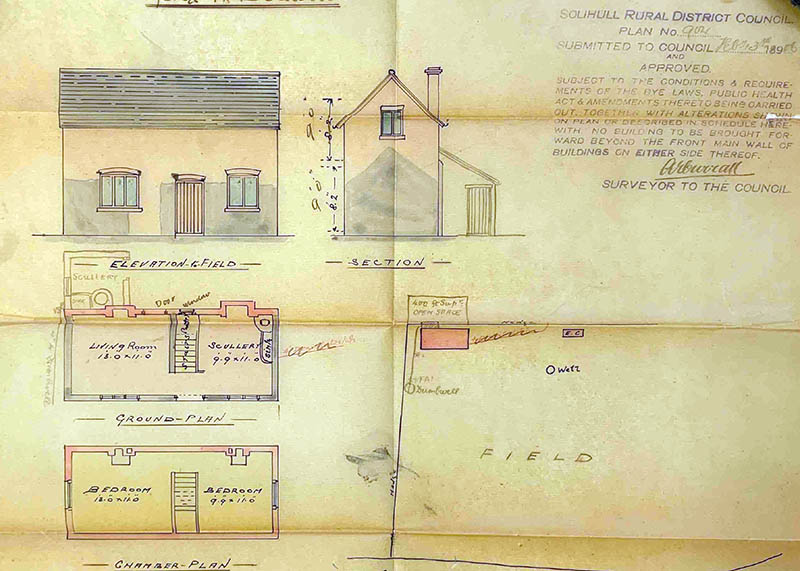 SOLIHULL RURAL DISTRICT COUNCIL.
PLAN NO. 902
SUBMITTED TO COUNCIL 189
AND
APPROVED.
SUBJECT TO THE CONDITIONS & REQUIRE-
MENTS OF THE BYE LAWS, PUBLIC HEALTH
ACT & AMENDMENTS THERETO BEING CARRIED
OUT, TOGETHER WITH ALTERATIONS SHOWN
ON PLAN OR DESCRIBED IN SCHEDULE HERE-
WITH. NO BUILDING TO BE BROUGHT FOR-
WARD BEYOND THE FRONT MAIN WALL OF
BUILDINGS ON EITHER SIDE THEREOF.
SURVEYOR TO THE COUNCIL.
9'.0"
9'.0"
8.2
ELEVATION-TO-FIELD
SECTION
SCULLERY
Door
Window
LIVING ROOM
13.0 x 11.0
SCULLERY
9.9 x 11.0
Sink
GROUND-PLAN
400 ft Sup'l
OPEN SPACE
Hedge
E.C
Well
Dumbwell
FIELD
Hedge
BEDROOM
13.0 x 11.0
BEDROOM
9.9 x 11.0
CHAMBER-PLAN